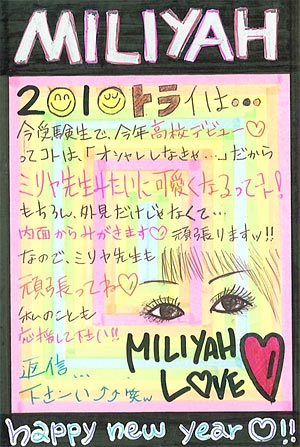 MILIYAH
2010トライは…
今受験生で、今年高校デビュー♡
ってコトは、「オシャレしなきゃ…」だから
ミリヤ先生みたいに可愛くなるってコト!
もちろん、外見だけじゃなくて…
内面からみがきます♡ 頑張りますッ!!
なので、ミリヤ先生も
頑張ってね♡
私のことも
応援して下さい!!
返信…
下さーい
MILIYAH
LOVE
happy new year♡!!